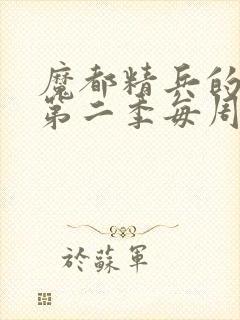 魔都精兵的
第二季每周
於蘇軍